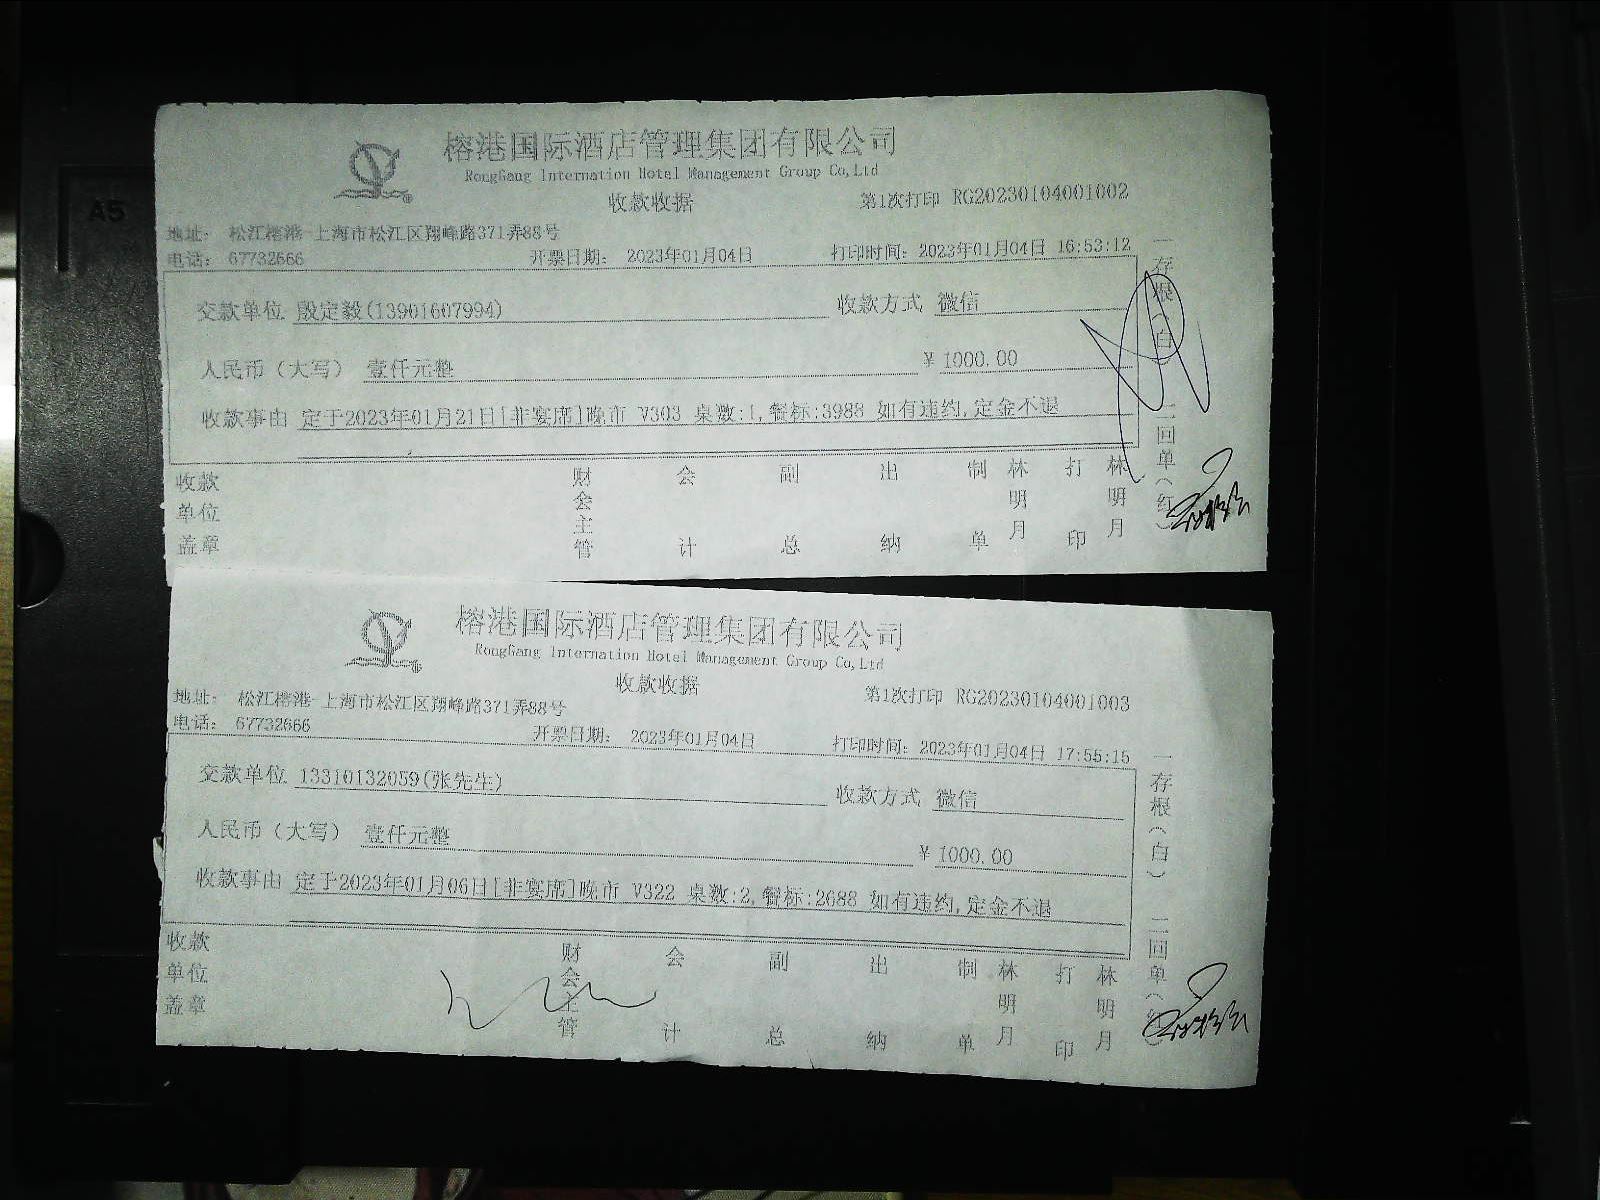 A5
榕港国际酒店管理集团有限公司
RongGang Internation Hotel Management Group Co,Ltd
收款收据
第1次打印 RG20230104001002
地址: 松江榕港-上海市松江区翔峰路371弄88号
电话: 67732666 开票日期: 2023年01月04日 打印时间: 2023年01月04日 16:53:12
交款单位 殷定毅(13901607994) 收款方式 微信
人民币（大写） 壹仟元整 ¥ 1000.00
收款事由 定于2023年01月21日[非宴席]晚市 V303 桌数:1,餐标:3988 如有违约,定金不退
收款单位盖章 财会主管 会计 副总 出纳 制单 林明月 打印 林明月
一存根（白） 二回单（红）
榕港国际酒店管理集团有限公司
RongGang Internation Hotel Management Group Co,Ltd
收款收据
第1次打印 RG20230104001003
地址: 松江榕港-上海市松江区翔峰路371弄88号
电话: 67732666 开票日期: 2023年01月04日 打印时间: 2023年01月04日 17:55:15
交款单位 13310132059(张先生) 收款方式 微信
人民币（大写） 壹仟元整 ¥ 1000.00
收款事由 定于2023年01月06日[非宴席]晚市 V322 桌数:2,餐标:2688 如有违约,定金不退
收款单位盖章 财会主管 会计 副总 出纳 制单 林明月 打印 林明月
一存根（白） 二回单（红）